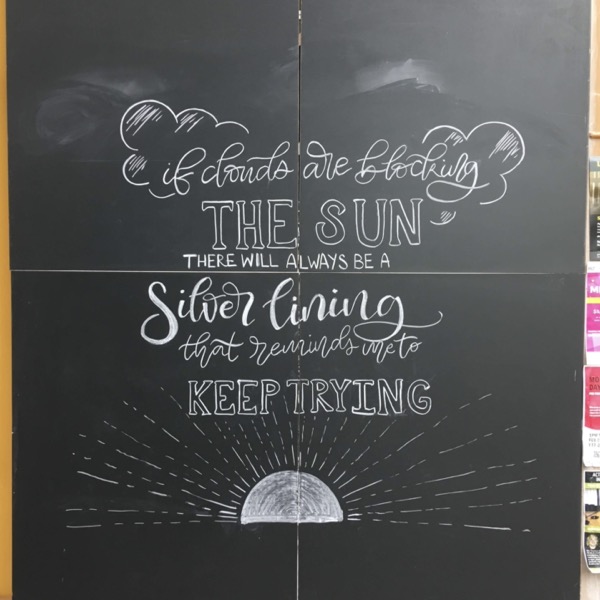 if clouds are blocking
THE SUN
THERE WILL ALWAYS BE A
Silver lining
that reminds me to
KEEP TRYING